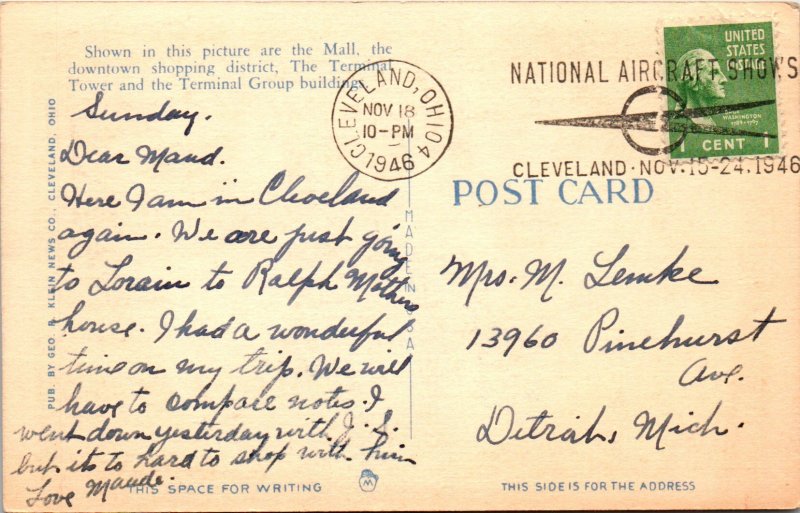 Shown in this picture are the Mall, the
downtown shopping district, The Terminal
Tower and the Terminal Group buildings.
PUB. BY GEO. R. KLEIN NEWS CO., CLEVELAND, OHIO
Sunday.
Dear Maud.
Here I am in Cleveland
again. We are just going
to Lorain to Ralph Mothers
house. I had a wonderful
time on my trip. We will
have to compare notes. I
went down yesterday with J. S.
but its to hard to shop with him
Love Maude.
THIS SPACE FOR WRITING
M
MADE IN U.S.A.
CLEVELAND, OHIO 4
NOV 18
10-PM
1946
NATIONAL AIRCRAFT SHOWS
CLEVELAND · NOV. 15-24, 1946
UNITED
STATES
POSTAGE
WASHINGTON
1789-1797
1 CENT 1
POST CARD
Mrs. M. Lemke
13960 Pinehurst
Ave.
Detroit, Mich.
THIS SIDE IS FOR THE ADDRESS